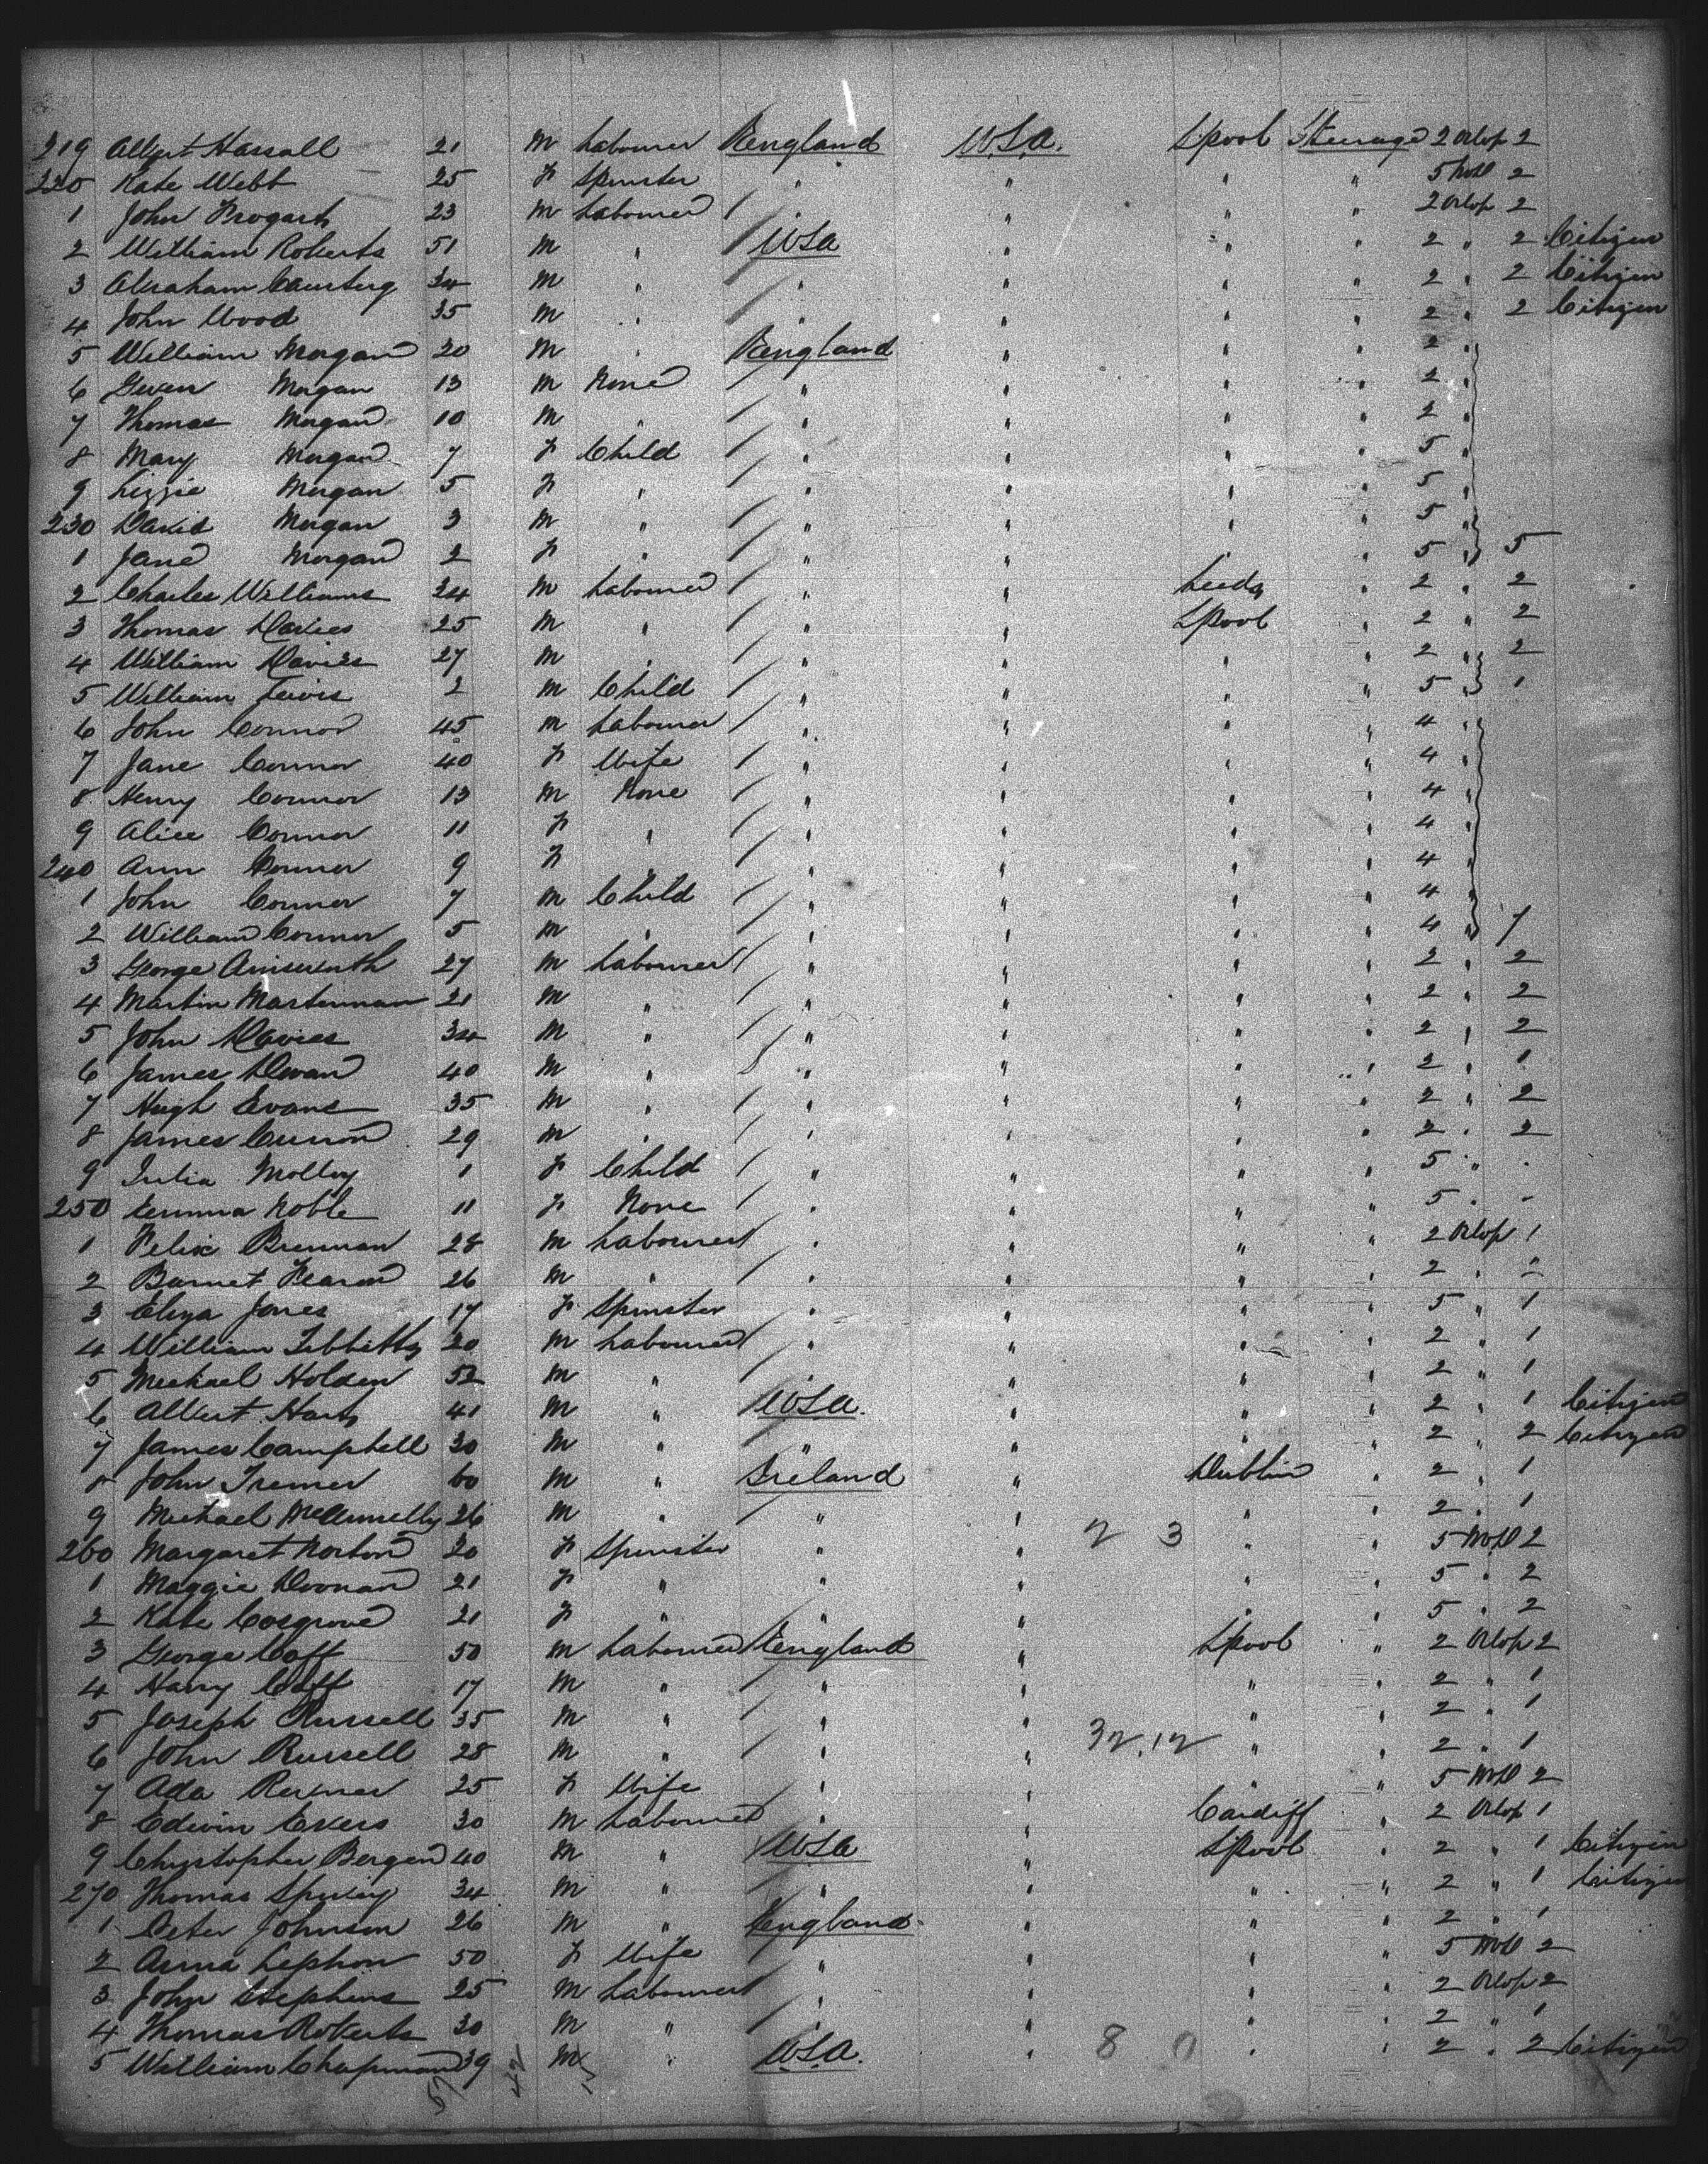 219 Albert Hassall 21 M Labourer England U.S.A. L'pool Steerage 2 Orlop 2
220 Kate Webb 25 F Spinster " " " " 5 2
1 John 23 M Labourer " " " " 2 Orlop 2
2 William Roberts 51 M " USA " " " 2 " 2 Citizen
3 Abraham 34 M " " " " " 2 " 2 Citizen
4 John Wood 35 M " " " " " 2 " 2 Citizen
5 William Morgan 20 M " England " " " 2 "
6 Gwen Morgan 13 M None " " " " 2 "
7 Thomas Morgan 10 M " " " " " 2 "
8 Mary Morgan 7 F Child " " " " 5 "
9 Lizzie Morgan 5 F " " " " " 5 "
230 David Morgan 3 M " " " " " 5 "
1 Jane Morgan 2 F " " " " " 5 " 5
2 Charles Williams 24 M Labourer " " Leeds " 2 " 2
3 Thomas Davies 25 M " " " L'pool " 2 " 2
4 William Davies 27 M " " " " " 2 " 2
5 William Lewis 2 M Child " " " " 5 " 1
6 John Connor 45 M Labourer " " " " 4 "
7 Jane Connor 40 F Wife " " " " 4 "
8 Henry Connor 13 M None " " " " 4 "
9 Alice Connor 11 F " " " " " 4 "
240 Ann Connor 9 F " " " " " 4 "
1 John Connor 7 M Child " " " " 4 "
2 William Connor 5 M " " " " " 4 " 7
3 George Ainsworth 27 M Labourer " " " " 2 " 2
4 Martin Masterman 21 M " " " " " 2 " 2
5 John Davies 34 M " " " " " 2 " 2
6 James Devan 40 M " " " " " 2 " 1
7 Hugh Evans 35 M " " " " " 2 " 2
8 James 29 M " " " " " 2 " 2
9 Julia Molloy 1 F Child " " " " 5 "
250 Emma Noble 11 F None " " " " 5 " -
1 Felix Brennan 28 M Labourer " " " " 2 Orlop 1
2 Barnet 26 M " " " " " 2 " 2
3 Eliza Jones 17 F Spinster " " " " 5 " 1
4 William Tibbitts 20 M Labourer " " " " 2 " 1
5 Michael Holden 52 M " " " " " 2 " 1
6 Albert Hart 41 M " USA. " " " 2 " 1 Citizen
7 James Campbell 30 M " " " " " 2 " 2 Citizen
8 John 60 M " Ireland " Dublin " 2 " 1
9 Michael 26 M " " " " " 2 " 1
260 Margaret Norton 20 F Spinster " " 2 3 " " 5 2
1 Maggie Doonan 21 F " " " " " 5 " 2
2 Kate Cosgrove 21 F " " " " " 5 " 2
3 George Goff 50 M Labourer England " L'pool " 2 Orlop 2
4 Harry Goff 17 M " " " " " 2 " 1
5 Joseph Russell 35 M " " " " " 2 "
6 John Russell 28 M " " " 32.12 " " 2 " 1
7 Ada 25 F Wife " " " " 5 2
8 Edwin 30 M Labourer " " Cardiff " 2 Orlop 1
9 Christopher Bergen 40 M " USA " L'pool " 2 " 1 Citizen
270 Thomas 34 M " " " " " 2 " 1 Citizen
1 Peter Johnson 26 M " England " " " 2 " 1
2 Anna 50 F Wife " " " " 5 2
3 John Stephens 25 M Labourer " " " " 2 Orlop 2
4 Thomas Roberts 30 M " " " " " 2 " 1
5 William Chapman 39 M " U.S.A. " 8 0 " " 2 " 2 Citizen